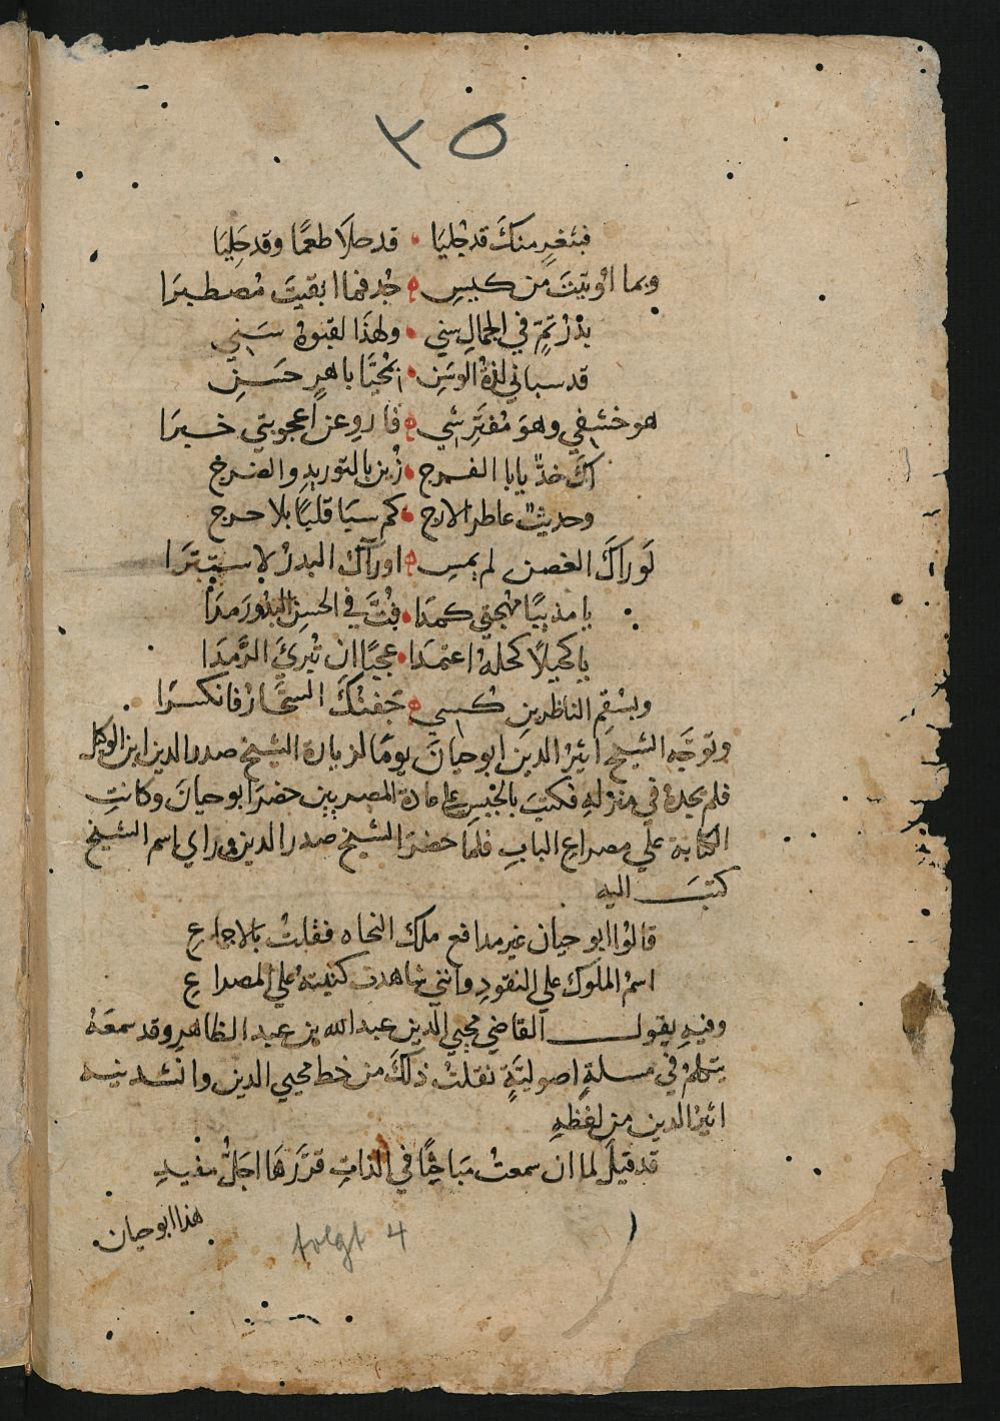 ٣٥
فبثغرٍ منكَ قد جُليَا • قد حلَا طعمًا وقد حَلِيَا
وبما اُوتيتَ من كيسِ ه جُد فما ابقيتَ مُصطبرَا
بدْرُ تمٍّ في الجمالِ سني • ولهذَا لقبوهُ سَني
قد سباني لذةُ الوسَنِ • بمُحيًّا باهرٍ حَسَنِ
هو خشفي وهوَ مُفترسي ه فاروِ عن اعجوبتي خبرَا
لكَ خدٌّ يابا الفرج • زُين بالتوريدِ والضرج
وحديثٌ عاطر الارج • كم سبَا قلبًا بلا حرج
لَو راكَ الغصن لم يمسِ ه او راَك البدرُ لاستترَا
يا مذيبًا مهجتي كمدَا • فُتَّ في الحسنِ البدُورَ مدَا
يا كحيلًا كحلهُ اعتمدَا • عجبًا ان تُبرئَ الرَّمدَا
وبسُقمِ الناظرين كُسي ه جَفنُكَ السَّحَّارُ فانكسرَا
وتوجَّه الشيخ اثيرُ الدين ابوحيانَ يومًا لزيارة الشيخ صدر الدين ابن الوكيل
فلم يجدهُ في منزلهِ فكتبَ بالجبسِ على عادة المصريين حضرَ ابو حيانَ وكانتِ
الكتابة على مصراعِ البابِ فلما حضرَ الشيخ صدر الدين وراي اسم الشيخ
كتبَ اليه
قالوُا ابو حيان غير مدافع ملك النحاه فقلتُ بالاجماعِ
اسمُ الملوك على النقودِ وانني شاهدت كنيتهُ علي المصراعِ
وفيهِ يقول القاضي محيي الدين عبد الله بن عبد الظاهرِ وقد سمعَهُ
يتكلمُ في مسلةٍ اصوليَّةٍ نقلتُ ذلكَ من خط محيي الدين وانشدنيه
اثيرُ الدين من لفظهِ
قد قيلَ لما ان سمعتُ مَباحِثًا في الذاتِ قرَّرَهَا اجَلُّ مفيدِ
هذا ابو حيان
folgt 4